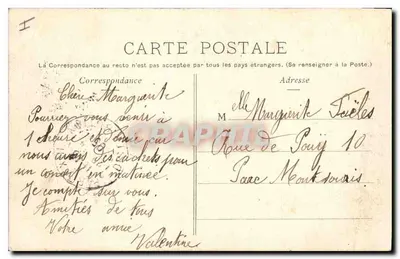 I
CARTE POSTALE
La Correspondance au recto n'est pas acceptée par tous les pays étrangers. (Se renseigner à la Poste.)
Correspondance
Adresse
Chère Marguerite
Pouvez vous venir à
1 heure et
nous avons des cachets pour
un concert en matinée
Je compte sur vous.
Amitiés de tous
Votre amie
Valentine
Melle Marguerite
Rue de 10
Parc Montsouris